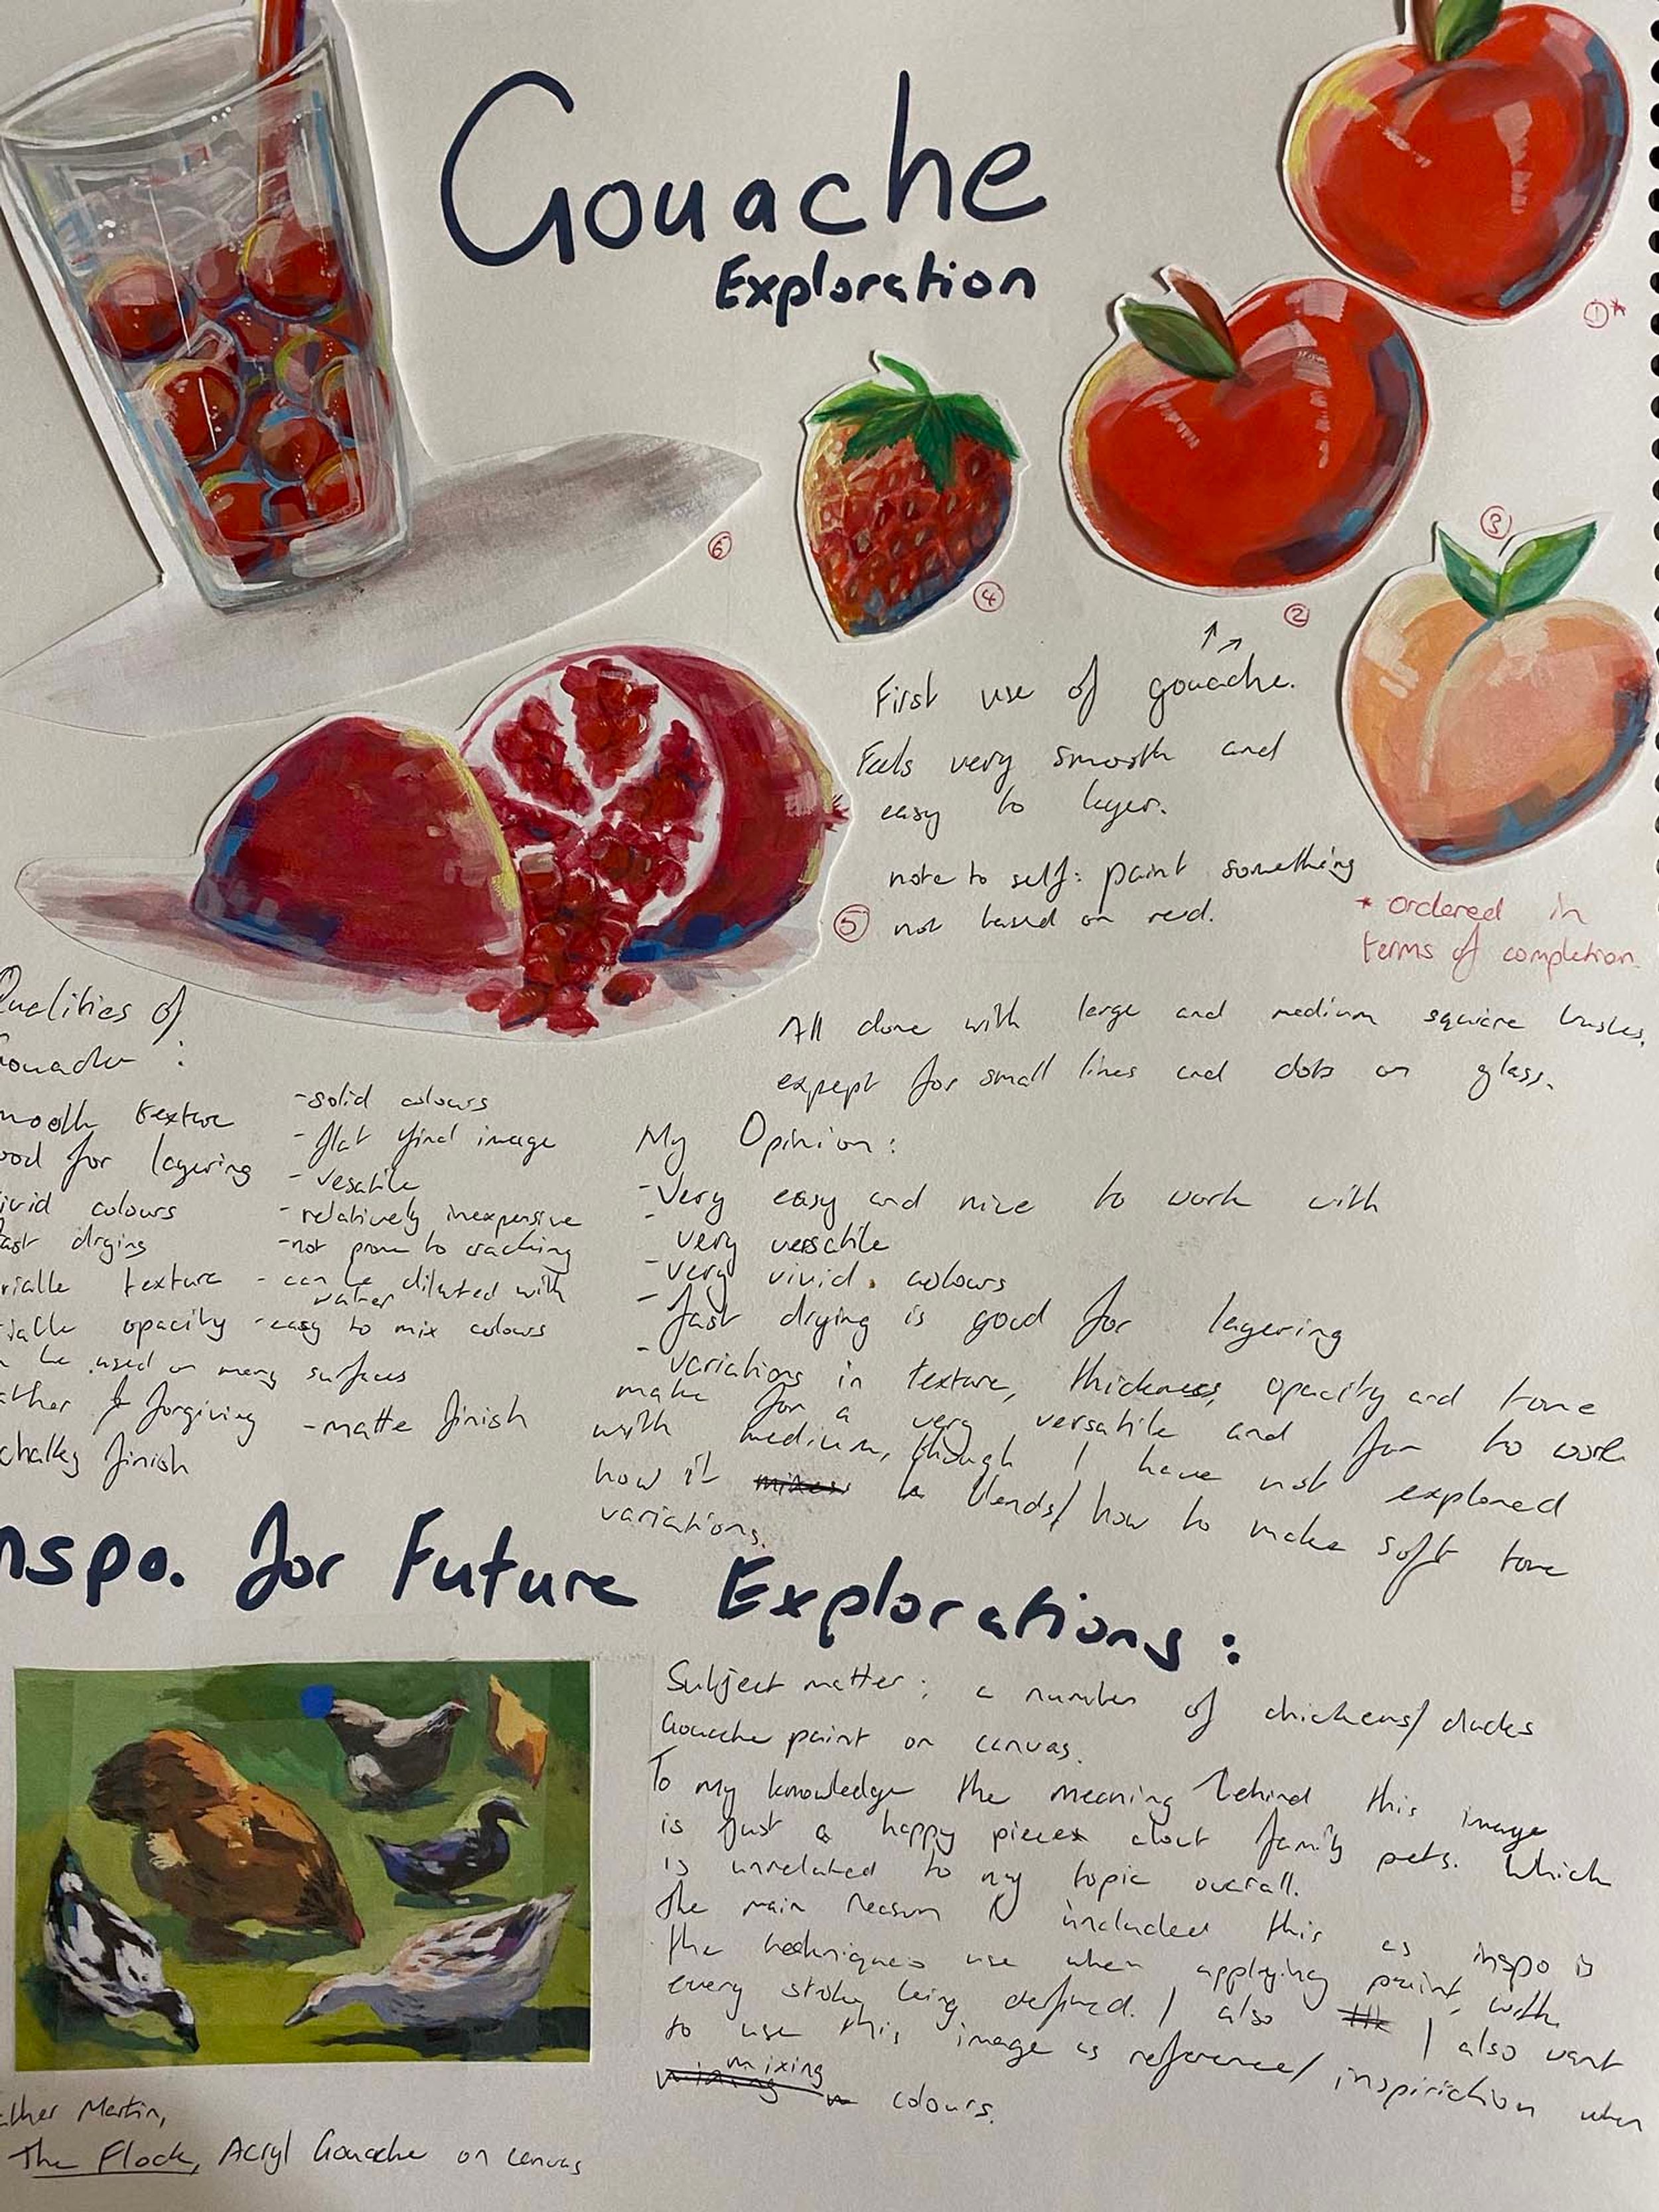 Gouache
Exploration
①*
②
③
④
⑥
First use of gouache.
Feels very smooth and
easy to layer.
note to self: paint something
not based on red.
⑤
* ordered in
terms of completion.
All done with large and medium square brushes,
expept for small lines and dots on glass.
Qualities of
Gouache :
smooth texture
good for layering
vivid colours
fast drying
texture
opacity
be used on many surfaces
rather forgiving
chalky finish
-solid colours
-flat final image
-vesatile
-relatively inexpensive
-not prone to cracking
-can be diluted with
water
-easy to mix colours
-matte finish
My Opinion:
-Very easy and nice to work with
-very versatile
-very vivid colours
-fast drying is good for layering
-variations in texture, thickness, opacity and tone
make for a very versatile and fun to work
with medium, though I have not explored
how it blends/how to make soft tone
variations.
nspo. for Future Explorations:
Subject matter: a number of chickens/ducks
Gouache paint on canvas.
To my knowledge the meaning behind this image
is just a happy piece about family pets. Which
is unrelated to my topic overall.
The main reason I included this as inspo is
the techniques use when applying paint, with
every stroke being defined. I also I also want
to use this image as reference/inspiriction when
mixing
colours.
ther Martin,
The Flock, Acryl Gouache on canvas